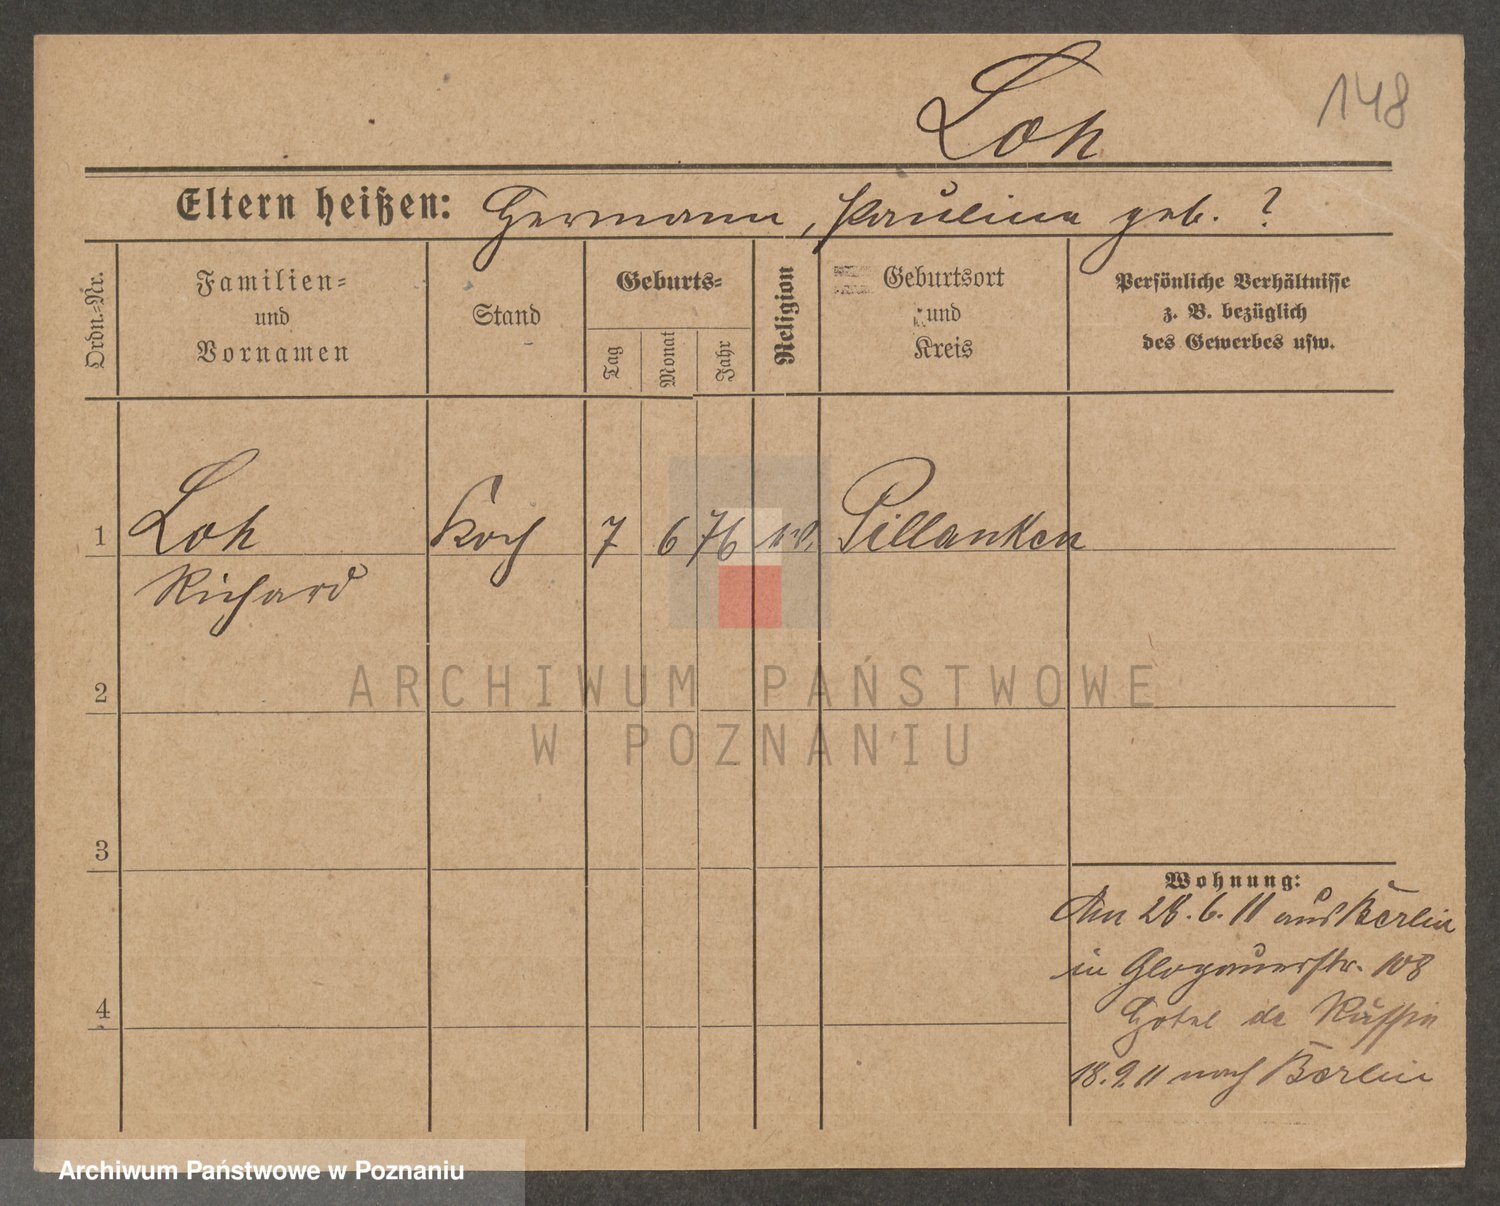 Loh
148
Eltern heißen: Hermann, Pauline geb. ?
Ordn.-Nr.
Familien-
und
Vornamen
Stand
Geburts-
Tag
Monat
Jahr
Religion
Geburtsort
und
Kreis
Persönliche Verhältnisse
z. B. bezüglich
des Gewerbes usw.
1 Loh Koch 7 6 76 Pillanken
Richard
2
3
4
Wohnung:
Am 28.6.11 aus Berlin
in Glogauerstr. 108
Hotel de Russie
18.9.11 nach Berlin
ARCHIWUM PAŃSTWOWE
W POZNANIU
Archiwum Państwowe w Poznaniu